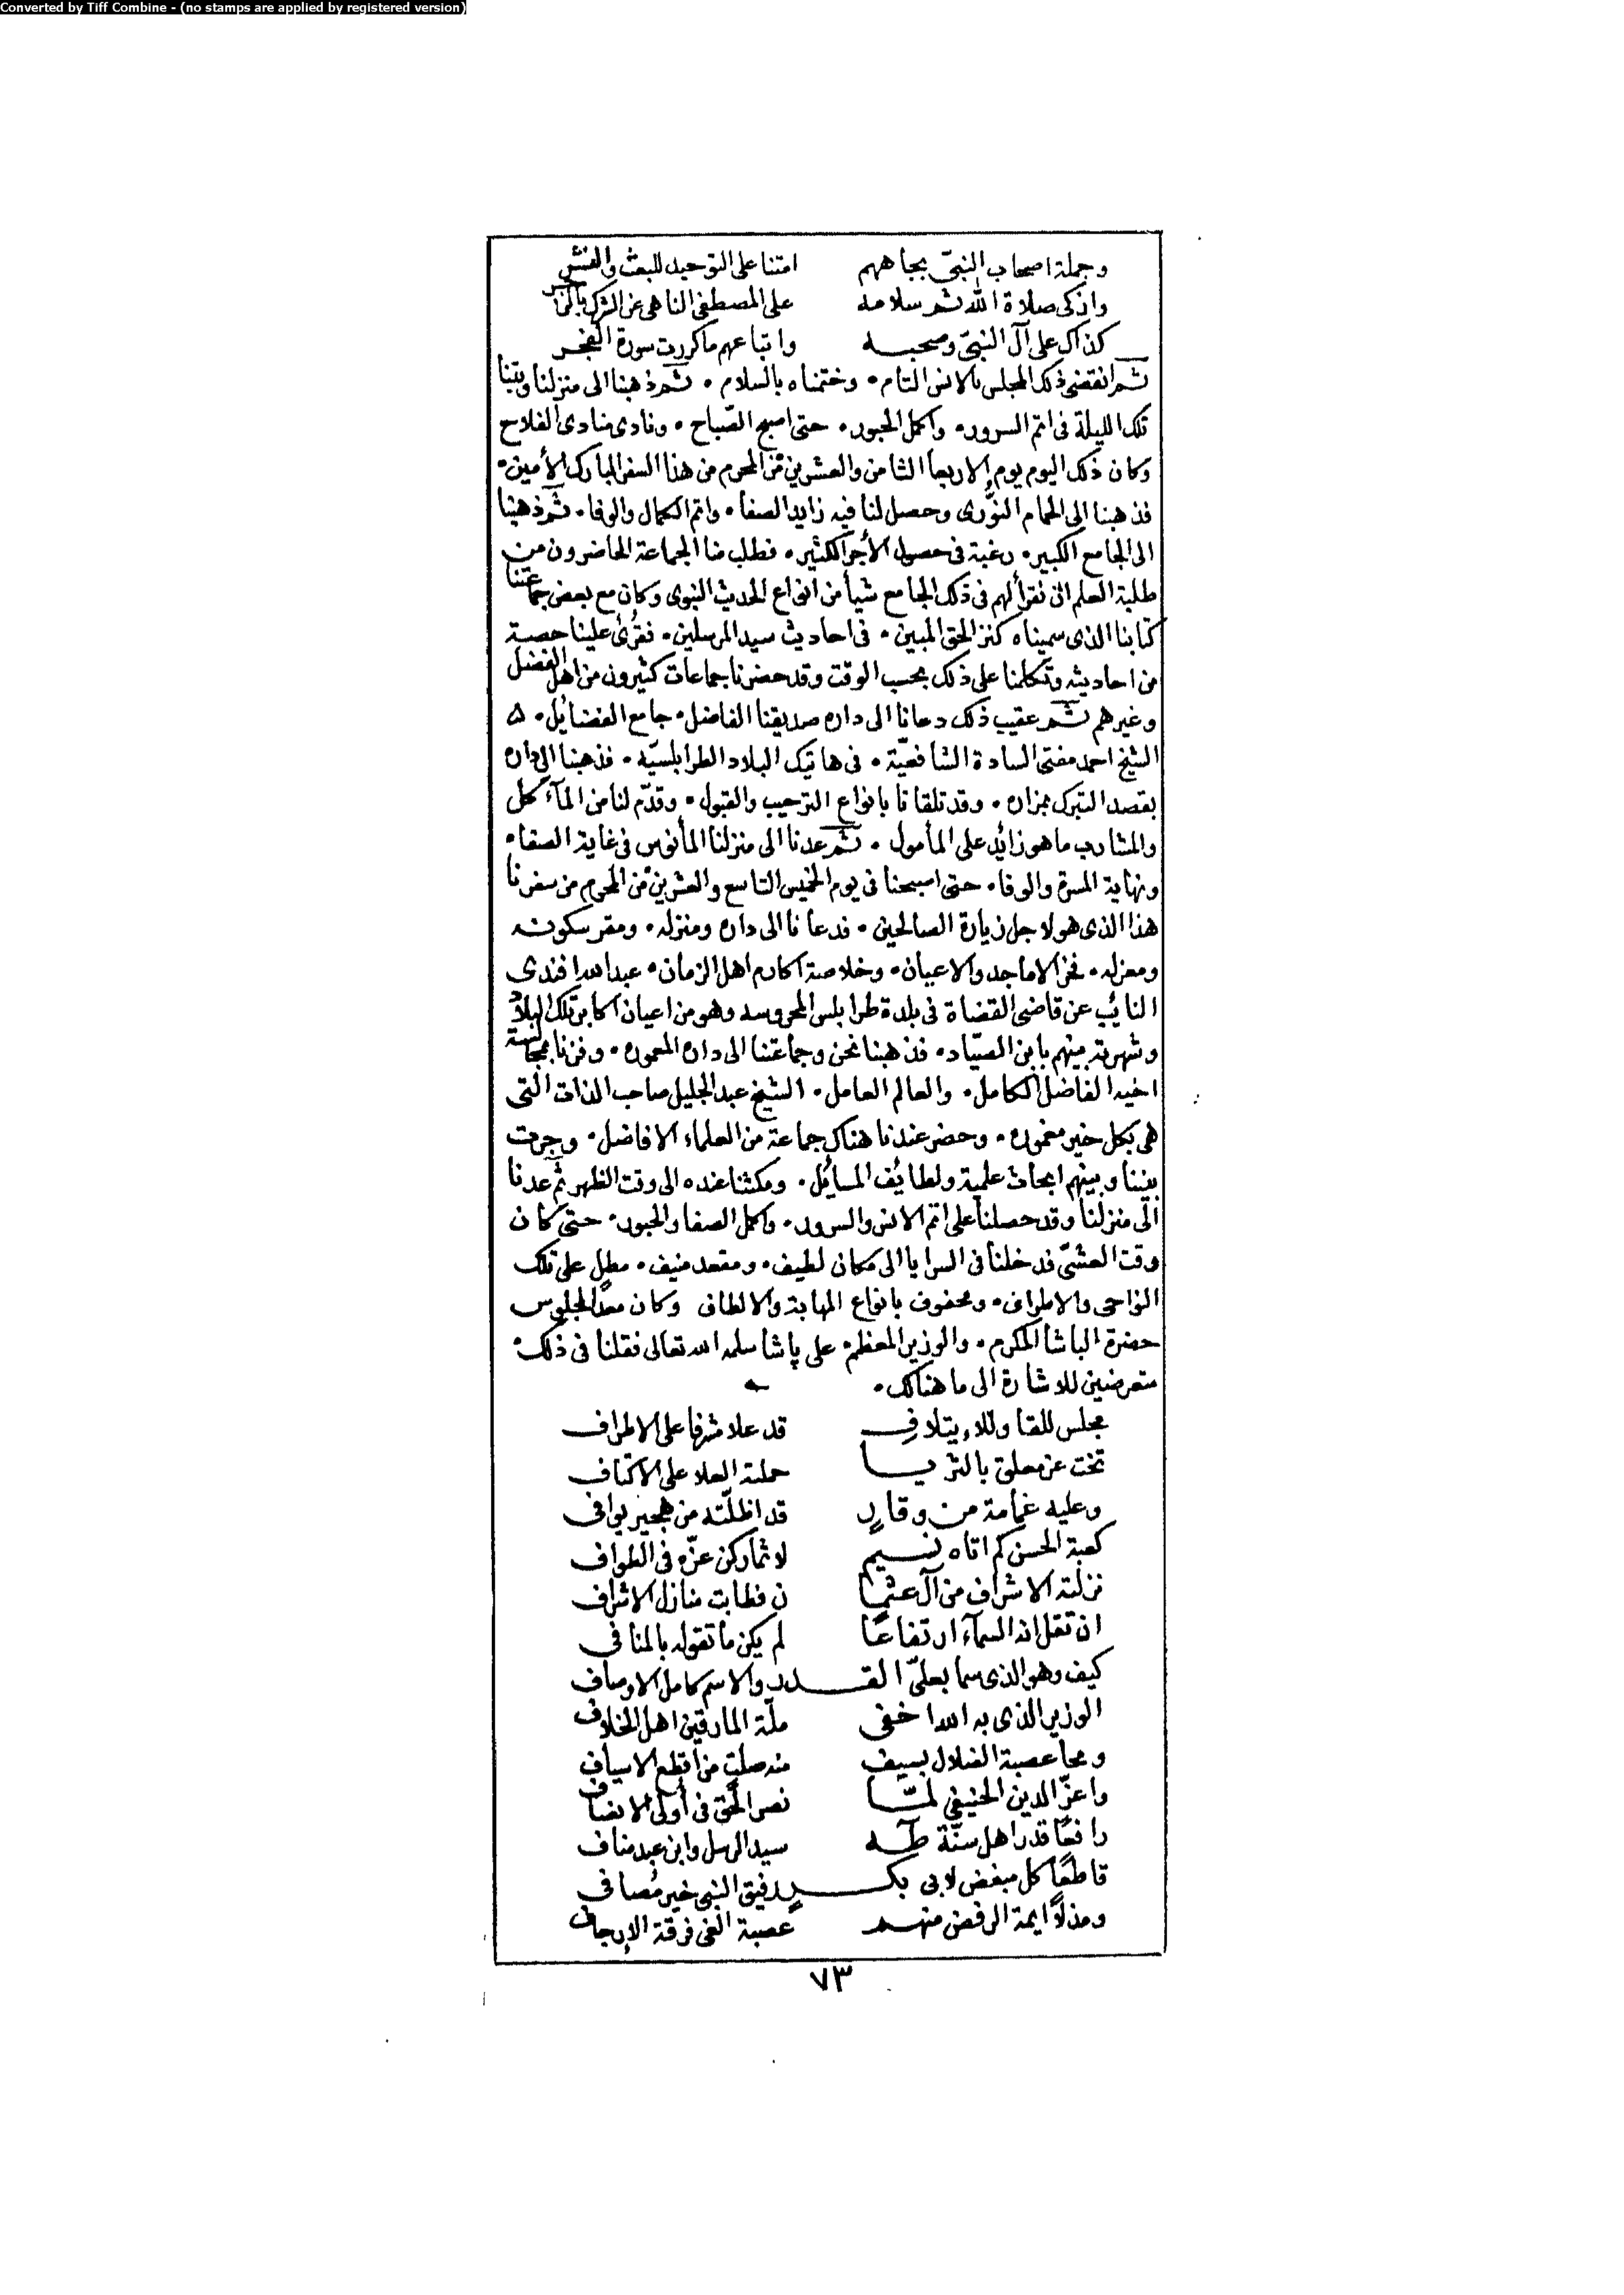 Converted by Tiff Combine - (no stamps are applied by registered version)
وجملة اصحاب النبيّ بجاههم امتنا على التوحيد للبعث والنشر
وازكى صلاة الله ثم سلامه على المصطفى الناهى عن الشرك بالزجر
كذاك على آل النبيّ وصحبه واتباعهم ماكررت سورة الفجر
ثم انقضى ذلك المجلس بالانس التام، وختمناه بالسلام، ثم ذهبنا الى منزلنا وبتنا
تلك الليلة فى اتم السرور، واكمل الحبور، حتى اصبح الصّباح، ونادى منادى الفلاح
وكان ذلك اليوم يوم الاربعا الثامن والعشرين من المحرم من هذا السفر المبارك الأمين،
فذهبنا الى الحمام النّورى وحصل لنا فيه زايد الصفا، واتم الكمال والوفا، ثم ذهبنا
الى الجامع الكبير، رغبة فى حصول الأجر الكثير، فطلب منا الجماعة الحاضرون من
طلبة العلم ان نقرأ لهم فى ذلك الجامع شيأ من انواع الحديث النبوى وكان مع بعض جماعتنا
كتابنا الذى سميناه كنز الحق المبين، فى احاديث سيد المرسلين، فقرئ علينا حصة
من احاديثه وتكلمنا على ذلك بحسب الوقت وقد حضرنا جماعات كثيرون من اهل الفضل
وغيرهم ثم عقيب ذلك دعانا الى داره صديقنا الفاضل، جامع الفضائل، ه
الشيخ احمد مفتى السادة الشافعيّة، فى هاتيك البلاد الطرابلسيّه، فذهبنا الى داره
بقصد التبرك بمزاره، وقد تلقانا بانواع الترحيب والقبول، وقدّم لنا من المآكل
والمشارب ما هو زائد على المأمول، ثم عدنا الى منزلنا المأنوس فى غاية الصفا،
ونهاية المسرة والوفا، حتى اصبحنا فى يوم الخميس التاسع والعشرين من المحرم من سفرنا
هذا الذى هو لاجل زيارة الصالحين، فدعانا الى داره ومنزله، ومقر سكونه
ومعزله، فخر الاماجد والاعيان، وخلاصة اكارم اهل الزمان، عبد الله افندى
النائب عن قاضى القضاة فى بلدة طرابلس المحروسه وهو من اعيان اكابر تلك البلاد
وشهرته بينهم بابن الصيّاد، فذهبنا نحن وجماعتنا الى داره المعموره، وفزنا بمجالسة
اخيه الفاضل الكامل، والعالم العامل، الشيخ عبد الجليل صاحب الذات التى
هى بكل خير مغموره، وحضر عندنا هناك جماعة من العلماء الافاضل، وجرت
بيننا وبينهم ابحاث علمية ولطائف المسائل، ومكثنا عنده الى وقت الظهر ثم عدنا
الى منزلنا وقد حصلنا على اتم الانس والسرور، واكمل الصفا والحبور، حتى كان
وقت العشىّ فدخلنا فى السرايا الى مكان لطيف، ومقعد منيف، مطل على تلك
النواحى والاطراف، ومحفوف بانواع المهابة والالطاف وكان معدًّا لجلوس
حضرة الباشا المكرم، والوزير المعظم، على پاشا سلمه الله تعالى فقلنا فى ذلك،
متعرضين للاشارة الى ما هنالك،
مجلس للقا وللايتلافِ قد علا مشرفا على الاطراف
تخت عز معلق بالثريا حملته العلا على الاكتاف
وعليه غمامة من وقارٍ قد اظلّته من هجير يوافى
كعبة الحسن كم اتاه نسيم لاثما ركن عزّه فى الطواف
نزلته الاشراف من آل عثما ن فطابت منازل الاشراف
ان تقل انه السمآء ارتفاعًا لم يكن ما تقوله بالمنافى
كيف وهو الذى سما بعلىّ القدر والاسم كامل الاوصاف
الوزير الذى به الله اخفى ملّة المارقين اهل الخلاف
ومحا عصبة الضلال بسيف منه صلتٍ من اقطع الاسياف
واعزّ الدين الحنيفى لمّا نصر الحق فى أولى الانصاف
رافعًا قدر اهل سنّة طه سيد الرسل وابن عبد مناف
قاطعًا كل مبغض لابى بكرٍ رفيق النبى خير مُصافى
ومذلاًّ ايمة الرفض منهم عصبة الغى فرقة الإرجاف
٧٣